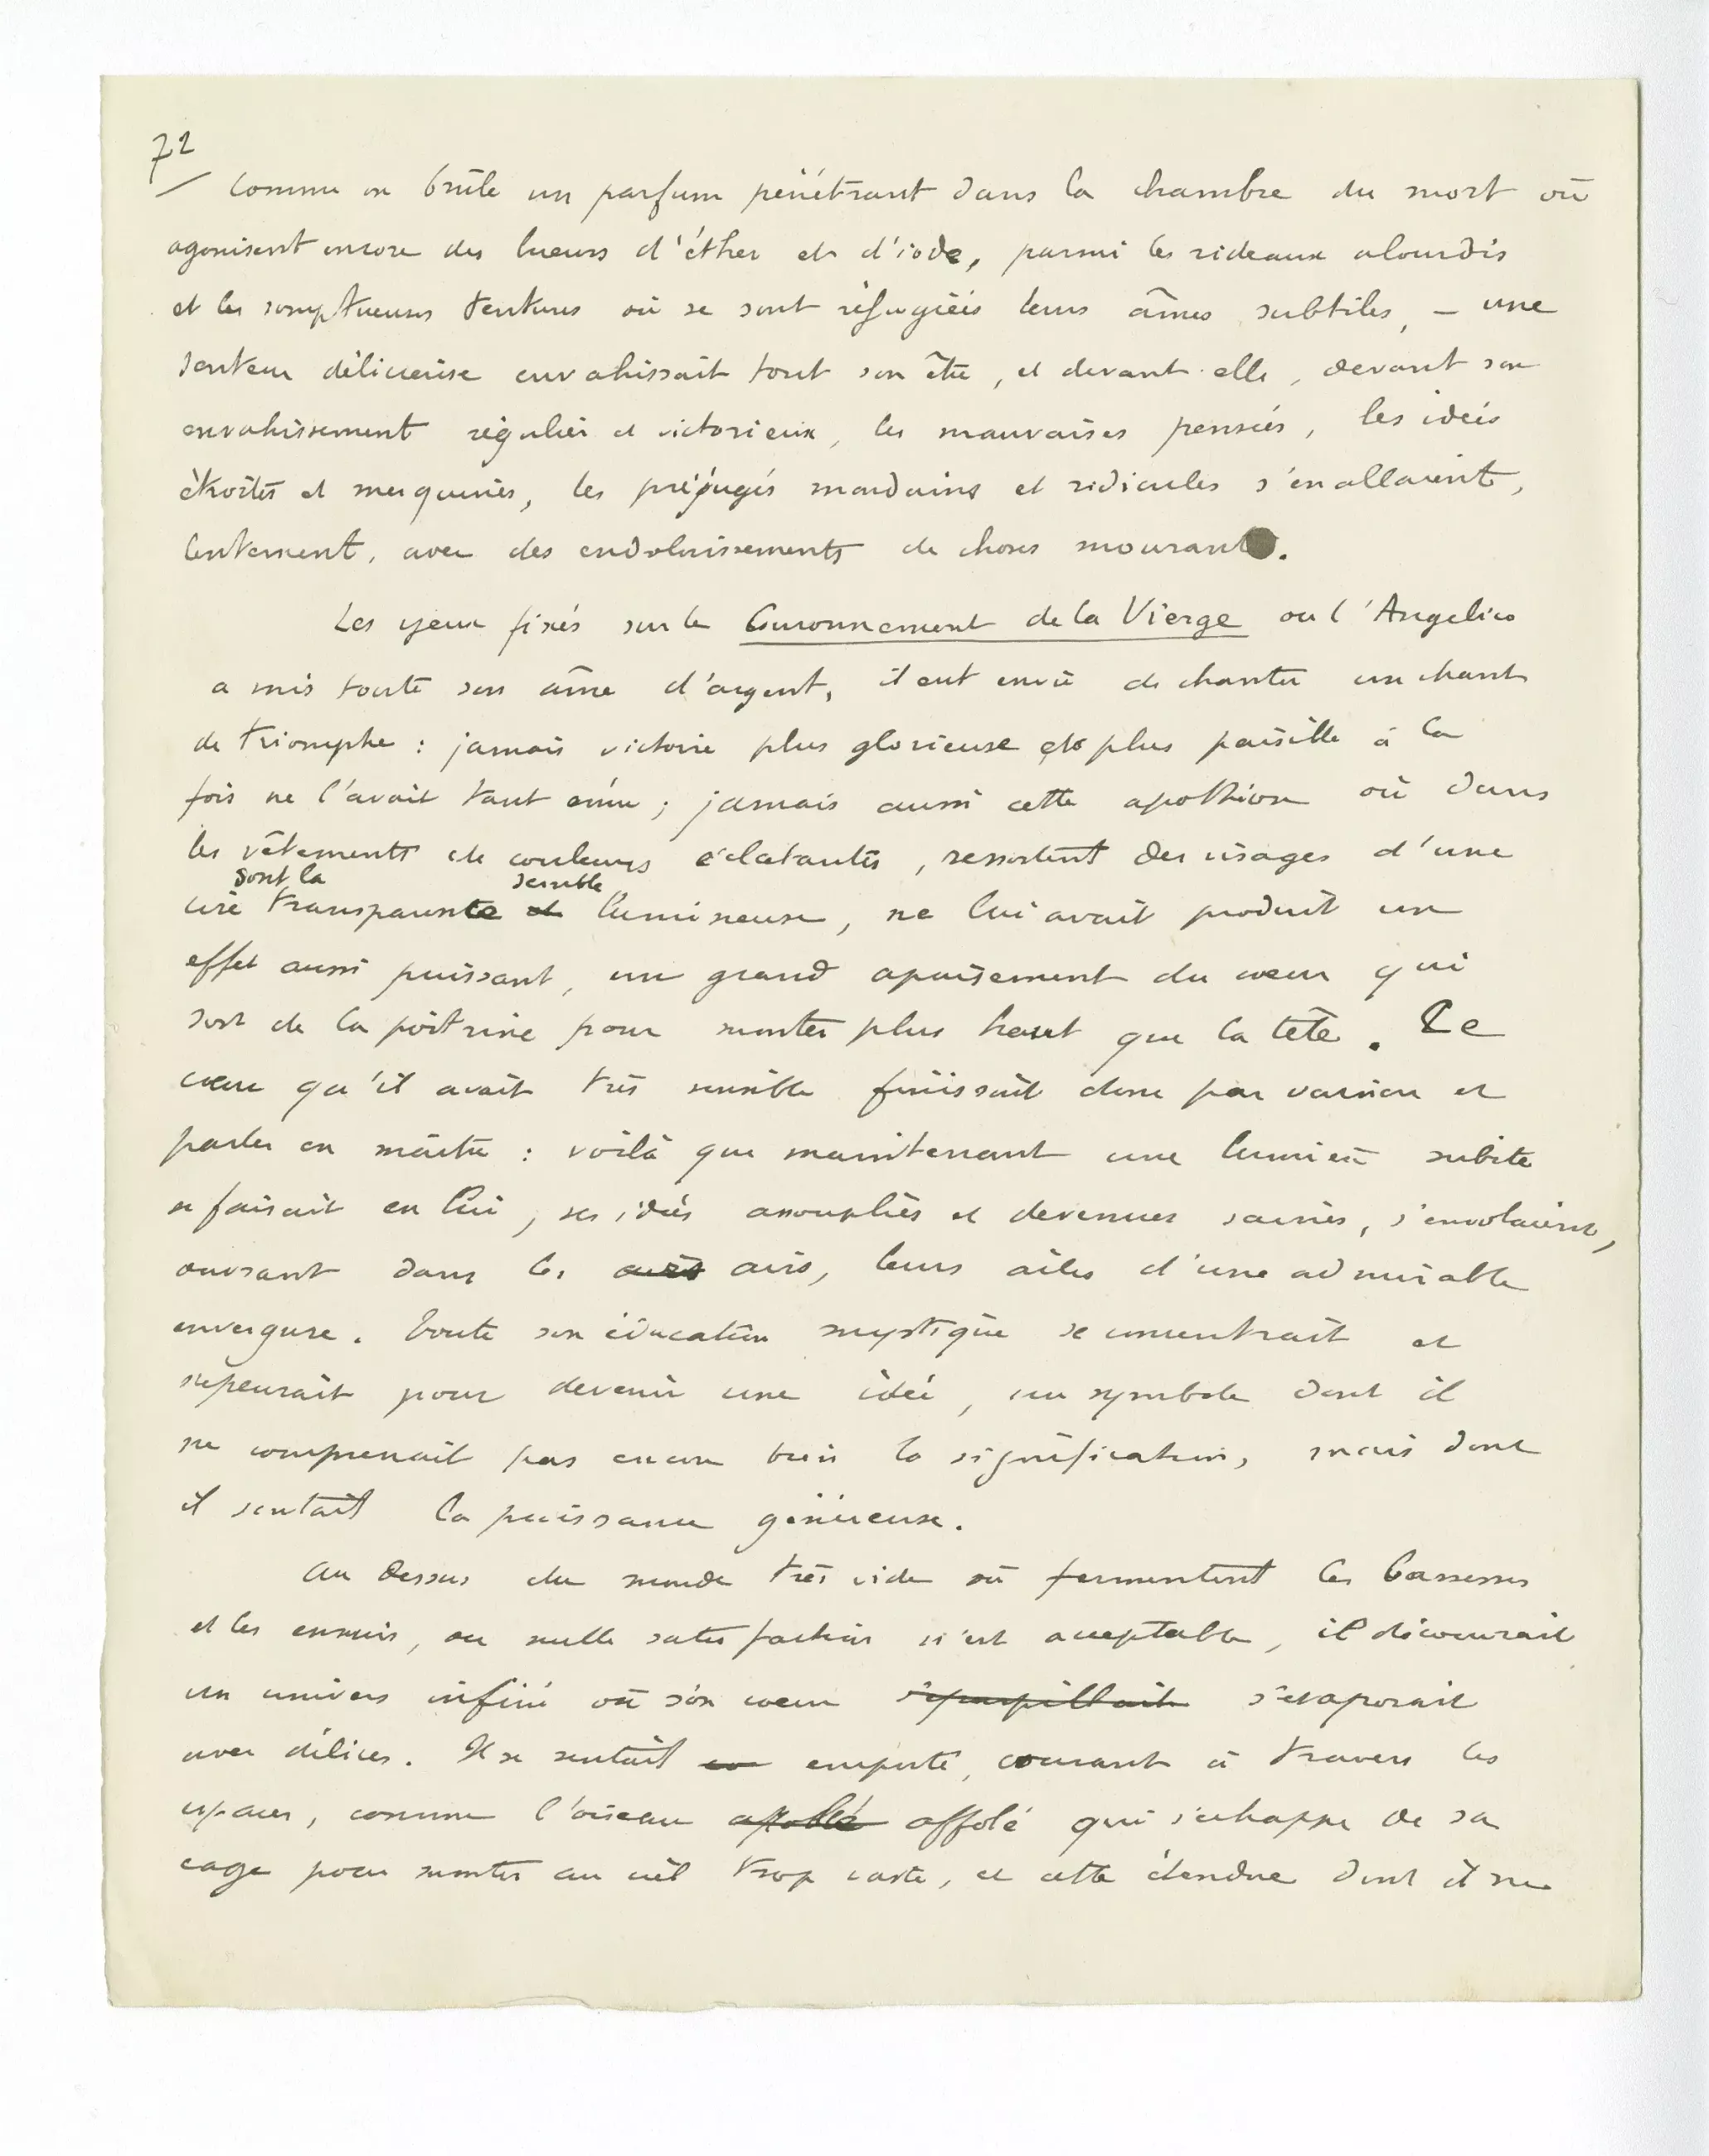 72
Comme on brûle un parfum pénétrant dans la chambre du mort où
agonisent encore des lueurs d'éther et d'iode, parmi les rideaux alourdis
et les somptueuses tentures où se sont réfugiées leurs âmes subtiles, – une
senteur délicieuse envahissait tout son être, et devant elle, devant son
envahissement régulier et victorieux, les mauvaises pensées, les idées
étroites et mesquines, les préjugés mondains et ridicules s'en allaient,
lentement, avec des endolorissements de choses mourantes.
Les yeux fixés sur le Couronnement de la Vierge où l'Angelico
a mis toute son âme d'argent, il eut envie de chanter un chant
de triomphe : jamais victoire plus glorieuse et plus paisible à la
fois ne l'avait tant ému ; jamais aussi cette apothéose où dans
les vêtements de couleurs éclatantes, ressortent des visages d'une
dont la semble
cire transparente et lumineuse, ne lui avait produit un
effet aussi puissant, un grand apaisement du coeur qui
sort de la poitrine pour monter plus haut que la tête. Le
coeur qu'il avait très sensible finissait donc par vaincre et
parler en maître : voilà que maintenant une lumière subite
se faisait en lui, ses idées assouplies et devenues saines, s'envolaient,
ouvrant dans les airs airs, leurs ailes d'une admirable
envergure. Toute son éducation mystique se concentrait et
s'épeurait pour devenir une idée, un symbole dont il
ne comprenait pas encore bien la signification, mais dont
il sentait la puissance généreuse.
Au dessus du monde très vide où fermentent les bassesses
et les ennuis, où nulle satisfaction n'est acceptable, il découvrait
un univers infini où son coeur s'éparpillait s'évaporait
avec délices. Il se sentait emporté, courant à travers les
espaces, comme l'oiseau affolé qui s'échappe de sa
cage pour monter au ciel trop vaste, et cette étendue dont il ne